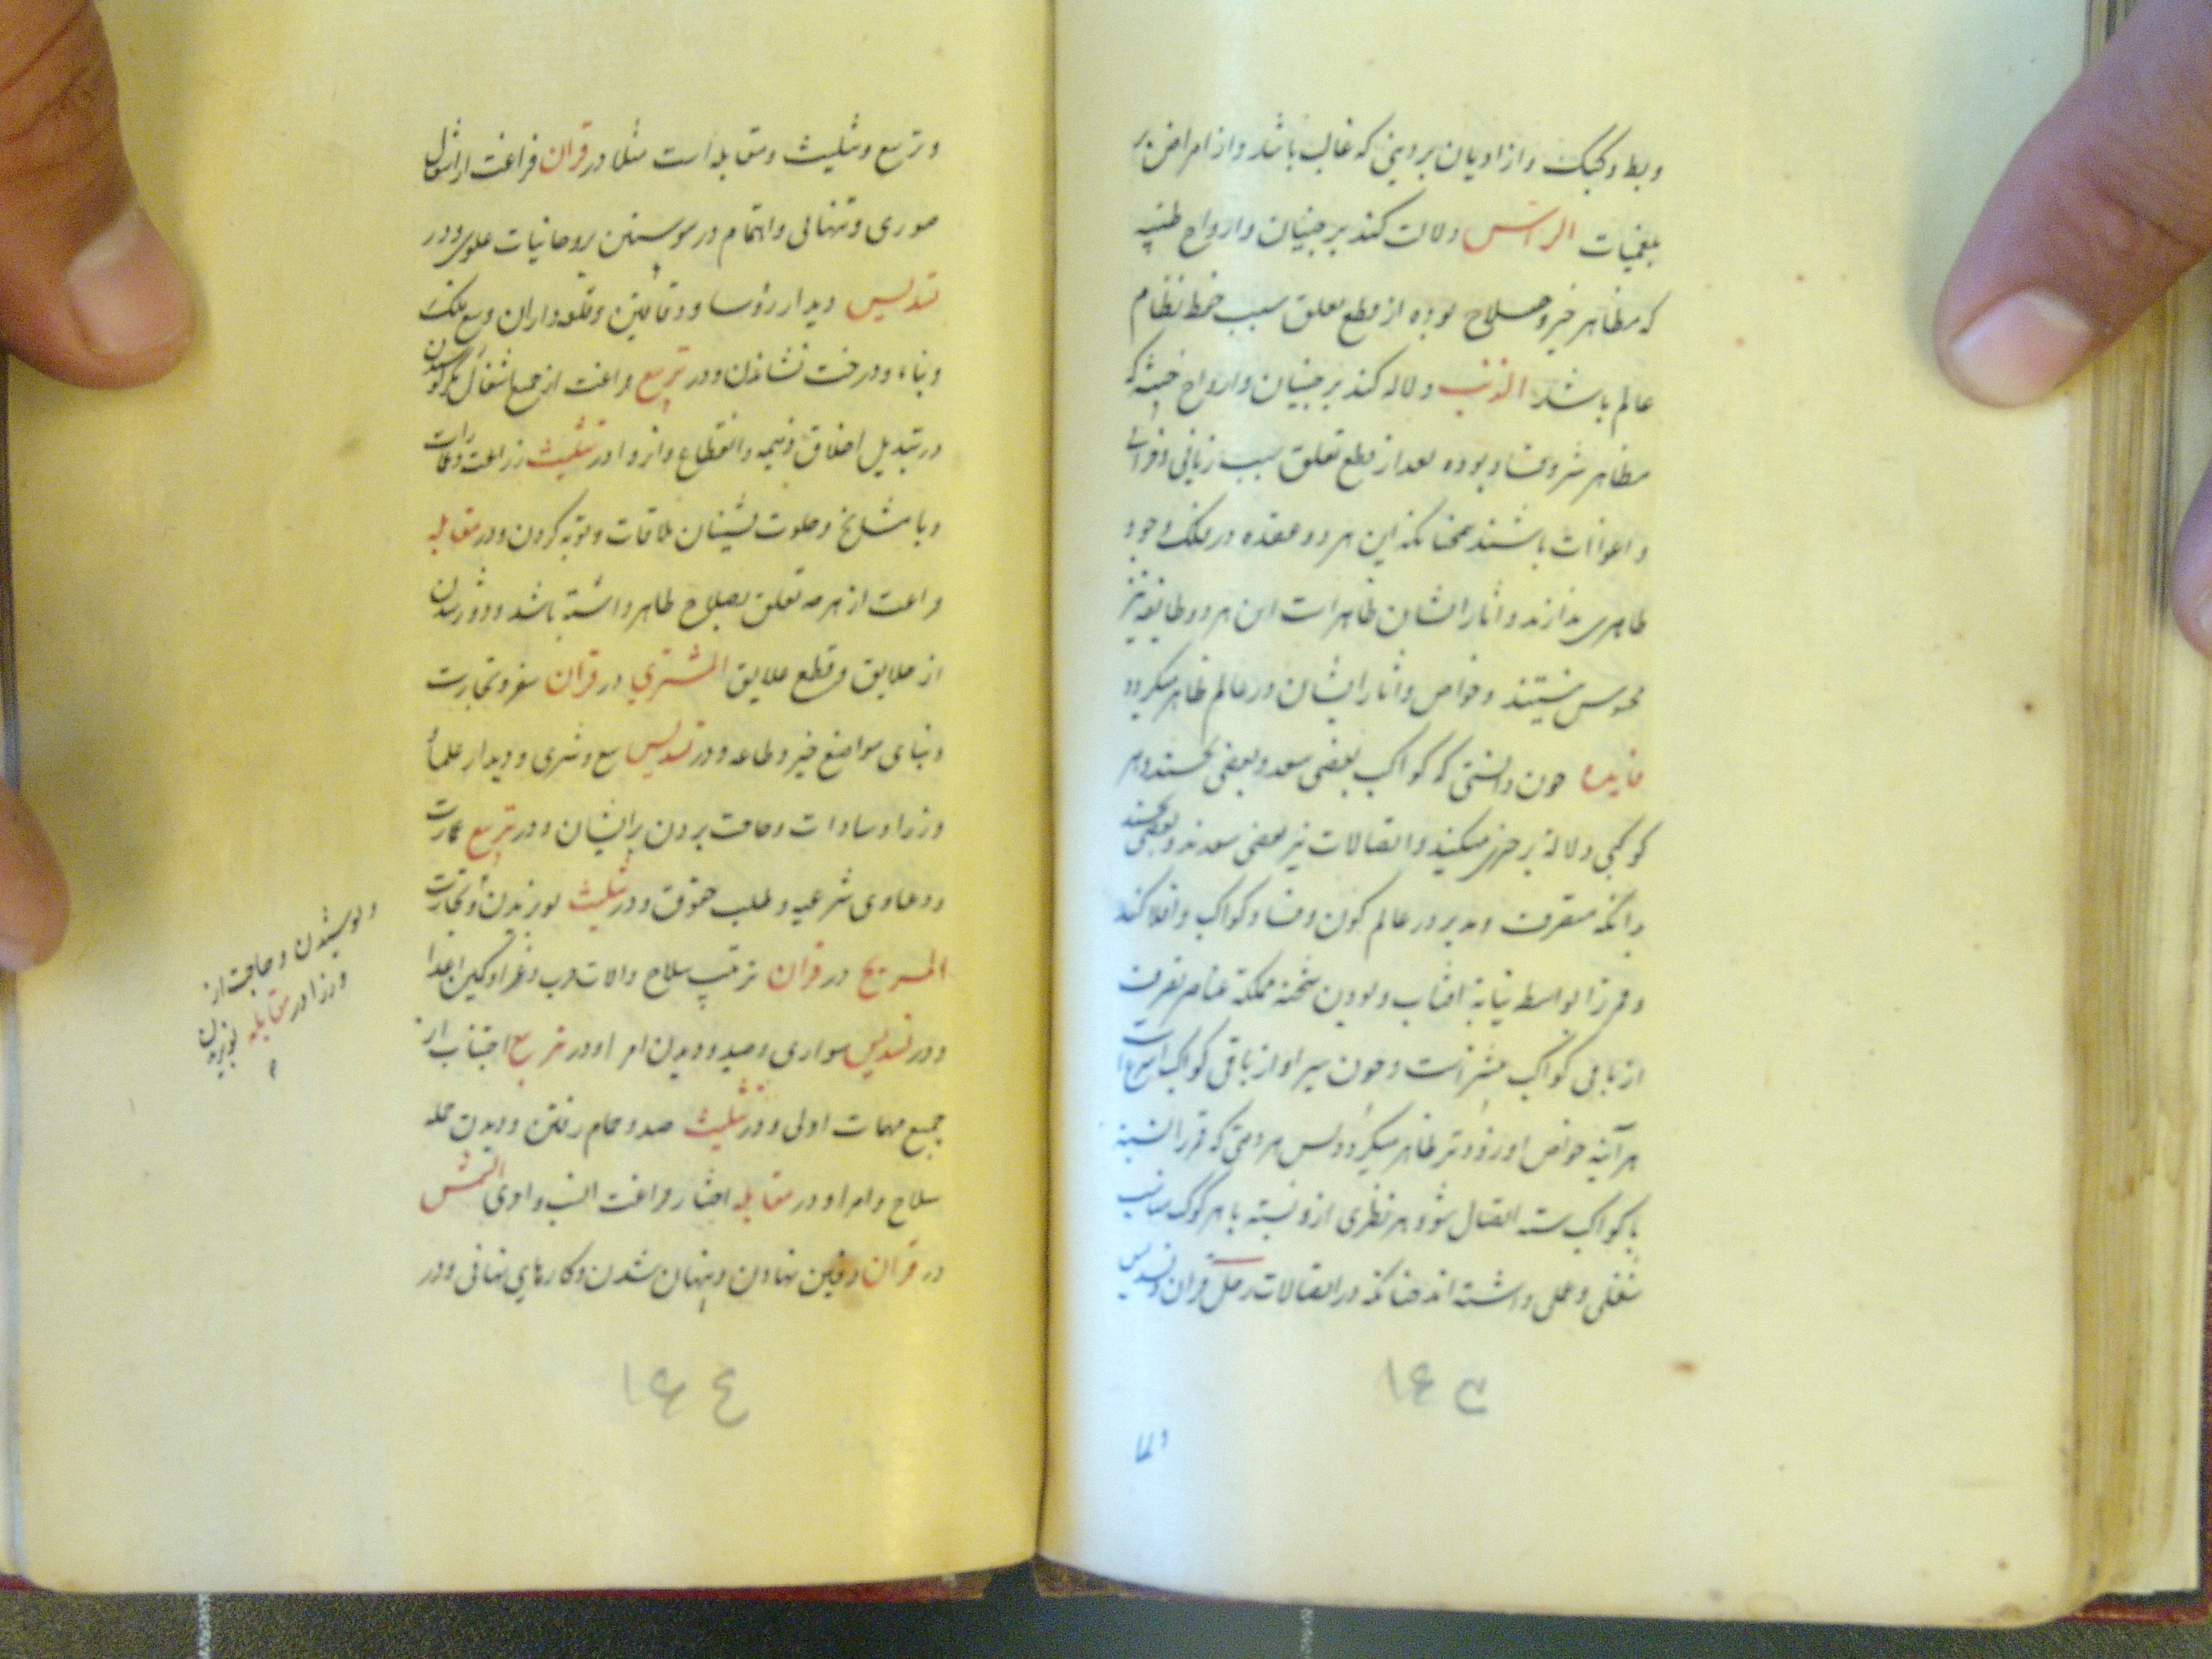 و بط و کبک و از ادیان بر دینی که غالب باشد و از امراض بر
بلغمیات الراس دلالت کند بر جنیان و ارواح طیبه
که مظاهر خیر و صلاح بوده از قطع تعلق سبب حفظ نظام
عالم باشد الذنب دلاله کند بر جنیان و ارواح خبیثه که
مظاهر شر و فساد بوده بعد از قطع تعلق سبب
باشند همچنانکه این هر دو عقده در فلک وجود
ظاهری ندارند و اثار ایشان ظاهر است این هر دو طایفه نیز
محسوس نیستند و خواص و اثار ایشان در عالم ظاهر میکردد
فایده چون دانستی که کواکب بعضی سعد و بعضی نحسند و هر
کوکبی دلالة بر چیزی میکنند و اتصالات نیز بعضی سعدند و بعضی نحسند
بدانکه متصرف و مدبر در عالم کون و فساد کواکب و افلاکند
و قمر را بواسطه نیابة افتاب و بودن شحنه مملکة عناصر تصرف
از باقی کواکب بیشتر است و چون سیر او از باقی کواکب اسرع است
هر آینه خواص او زودتر ظاهر میکردد پس هر وقتی که قمر را نسبة
با کواکب سته اتصال شود هر نظری ازو نسبة با هر کوکب مناسب
شغلی و عملی داشته اند چنانکه در اتصالات زحل قران و تسدیس
۱۶۳
و تربیع و تثلیث و مقابله است مثلا در قران فراغت از اشغال
صوری و تنهائی و اهتمام در پیوستن بروحانیات علوی و در
تسدیس دیدار رؤسا و دهاقین و قلعه داران و بیع ملک
و بناء و درخت نشاندن و در تربیع فراغت از جمیع اشغال مکر کوشیدن
در تبدیل اخلاق ذمیمه و انقطاع و انزوا و در تثلیث زراعت و عمارات
و با مشایخ و خلوت نشینان ملاقات و توبه کردن و در مقابله
فراغت از هر چه تعلق بصلاح ظاهر داشته باشد و دور شدن
از خلایق و قطع علایق المشتری در قران سفر و تجارت
و بنای مواضع خیر و طاعه و در تسدیس بیع و شری و دیدار علماء
وزرا و سادات و حاجت بردن بر ایشان و در تربیع عمارت
و دعاوی شرعیه و طلب حقوق و در تثلیث نو بریدن و تجارت
المریخ در قران ترتیب سلاح و الات حرب و غزا و کمین اعدا
و در تسدیس سواری و صید و دیدن امرا و در تربیع اجتناب از
جمیع مهمات اولی و در تثلیث صید و حمام رفتن و دیدن
سلاح و امرا و در مقابله اختیار فراغت انسب و اولی الشمس
در قران دفین نهادن و پنهان شدن و کارهای نهانی و در
۱۶٤
و پوشیدن و حاجت از
وزرا در مقابله نو بریدن